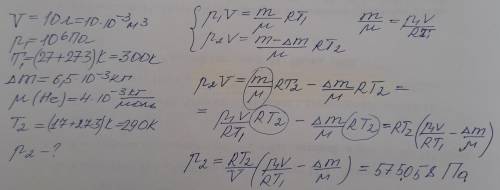 V = 10 л = 10·10⁻³ м³
p₁ = 10⁶ Па
T₁ = (27+273)К = 300К
Δm = 6,5·10⁻³ кг
μ(He) = 4·10⁻³ кг/моль
T₂ = (17+273)К = 290К
p₂ - ?
{ p₁V = m/μ RT₁
p₂V = (m-Δm)/μ RT₂
m/μ = p₁V/RT₁
p₂V = (m/μ) RT₂ - Δm/μ RT₂ =
= p₁V/RT₁ (RT₂) - Δm/μ (RT₂) = RT₂(p₁V/RT₁ - Δm/μ)
p₂ = RT₂/V (p₁V/RT₁ - Δm/μ) = 575058 Па